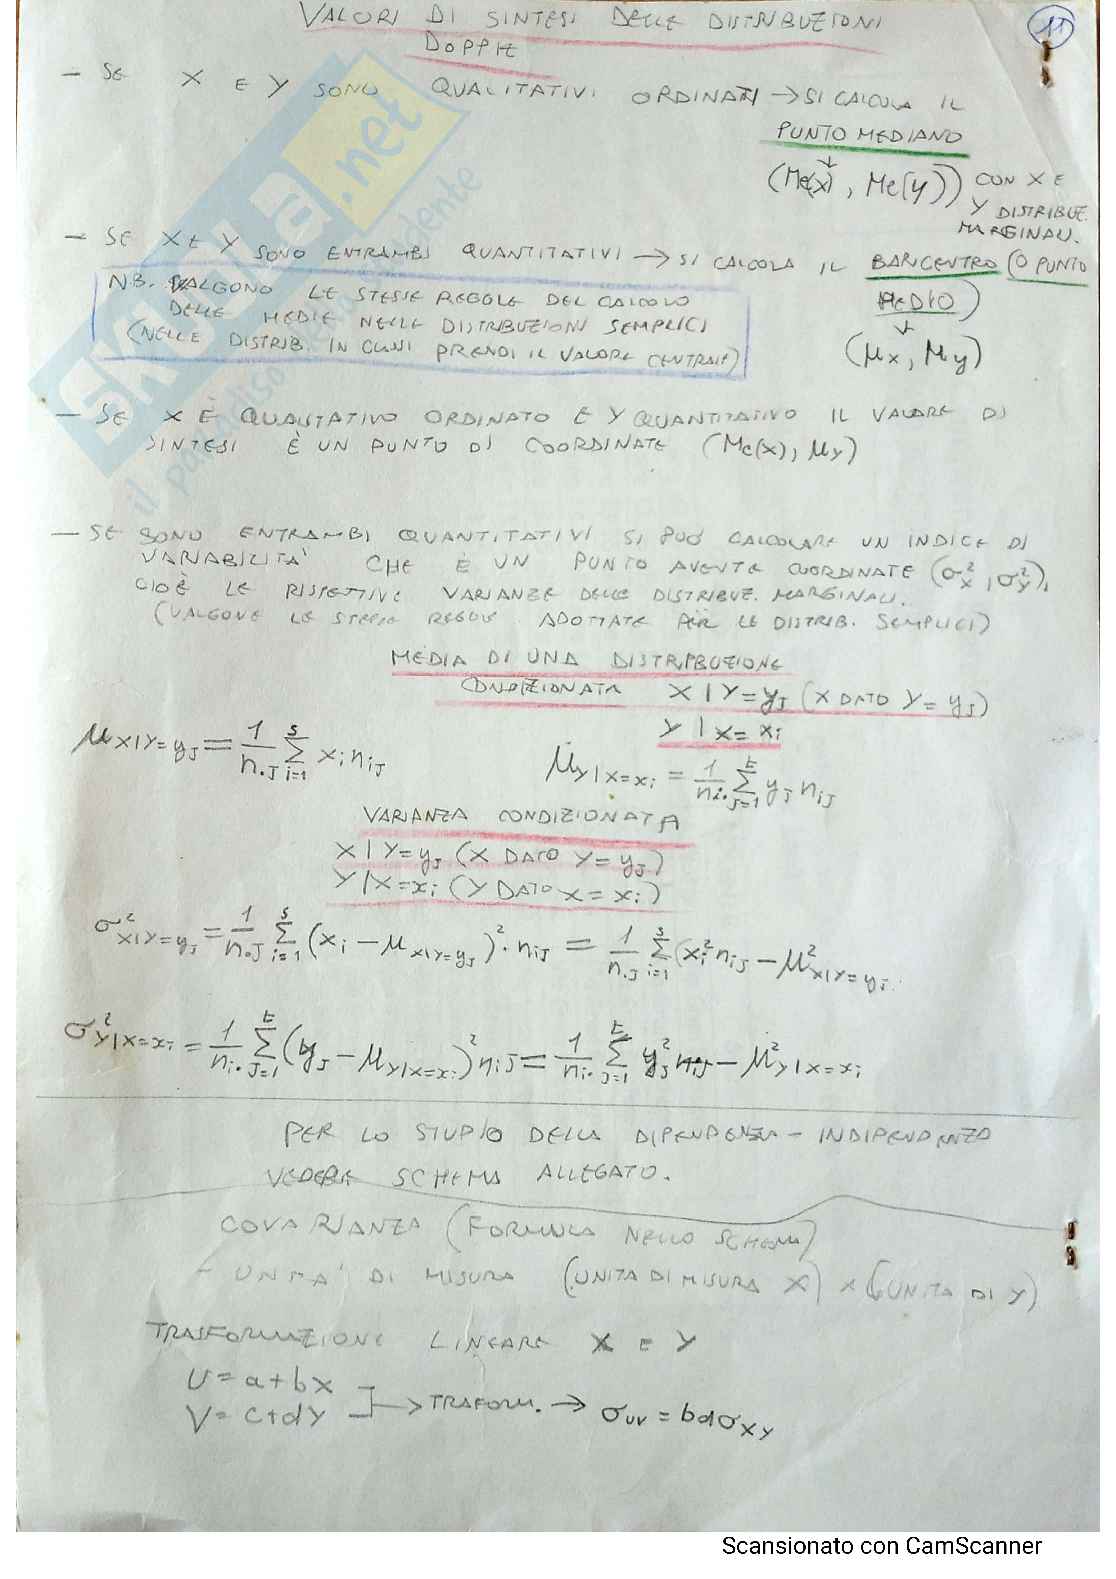 VALORI DI SINTESI DELLE DISTRIBUZIONI
DOPPIE
11
- SE X E Y SONO QUALITATIVI ORDINATI → SI CALCOLA IL
PUNTO MEDIANO
↓
(Me(x), Me(y)) CON X E
Y DISTRIBUZ.
MARGINALI.
- SE X E Y SONO ENTRAMBI QUANTITATIVI → SI CALCOLA IL BARICENTRO (O PUNTO
MEDIO)
↓
(μx, μy)
NB. VALGONO LE STESSE REGOLE DEL CALCOLO
DELLE MEDIE NELLE DISTRIBUZIONI SEMPLICI
(NELLE DISTRIB. IN CLASSI PRENDI IL VALORE CENTRALE)
- SE X È QUALITATIVO ORDINATO E Y QUANTITATIVO IL VALORE DI
SINTESI È UN PUNTO DI COORDINATE (Me(x), μy)
- SE SONO ENTRAMBI QUANTITATIVI SI PUÒ CALCOLARE UN INDICE DI
VARIABILITA' CHE È UN PUNTO AVENTE COORDINATE (σ²x, σ²y),
CIOÈ LE RISPETTIVE VARIANZE DELLE DISTRIBUZ. MARGINALI.
(VALGONO LE STESSE REGOLE ADOTTATE PER LE DISTRIB. SEMPLICI)
MEDIA DI UNA DISTRIBUZIONE
CONDIZIONATA X|Y=yj (X DATO Y=yj)
Y|X=xi
μX|Y=yj = 1/n.j Σ(i=1→s) xi nij
μY|X=xi = 1/ni. Σ(j=1→t) yj nij
VARIANZA CONDIZIONATA
X|Y=yj (X DATO Y=yj)
Y|X=xi (Y DATO X=xi)
σ²X|Y=yj = 1/n.j Σ(i=1→s) (xi - μX|Y=yj)² · nij = 1/n.j Σ(i=1→s) (xi² nij - μ²X|Y=yj
σ²Y|X=xi = 1/ni. Σ(j=1→t) (yj - μY|X=xi)² nij = 1/ni. Σ(j=1→t) yj² nij - μ²Y|X=xi
PER LO STUDIO DELLA DIPENDENZA - INDIPENDENZA
VEDERE SCHEMA ALLEGATO.
COVARIANZA (FORMULA NELLO SCHEMA)
- UNITA' DI MISURA (UNITA DI MISURA X) x (UNITA DI Y)
TRASFORMAZIONE LINEARE X E Y
U = a+bx
V = c+dy → TRAFORM. → σuv = bdσxy
SKUOLA.net
Scansionato con CamScanner